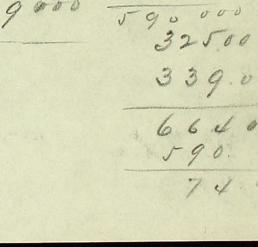 9000
590 000
325.00
339.0
6640
590.
74